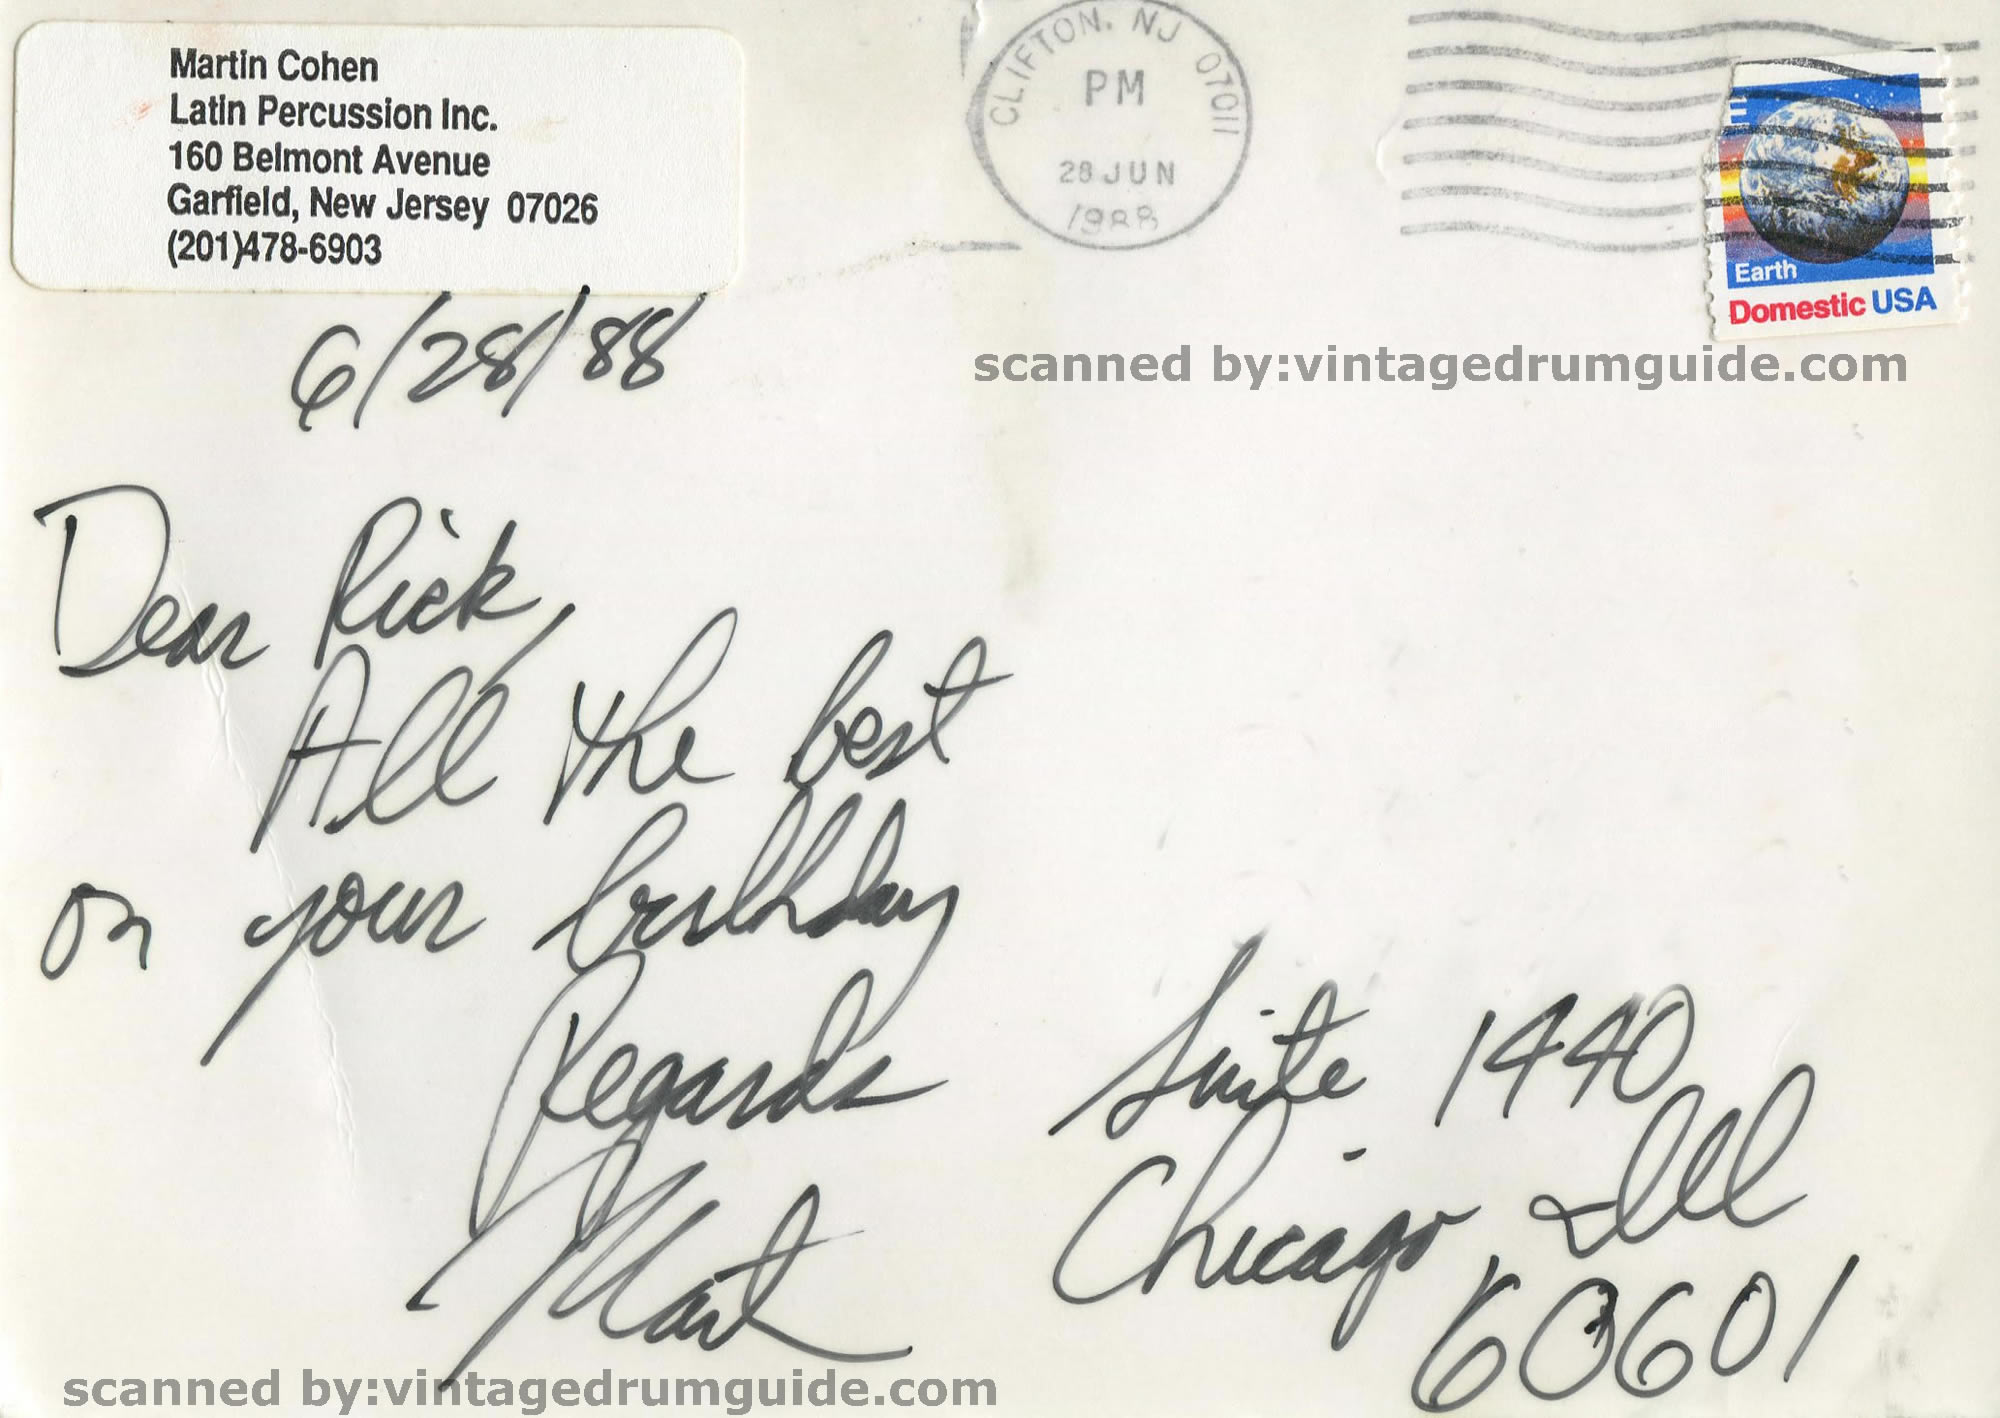 Martin Cohen
Latin Percussion Inc.
160 Belmont Avenue
Garfield, New Jersey 07026
(201)478-6903
CLIFTON, NJ 07011
PM
28 JUN
1988
E
Earth
Domestic USA
scanned by:vintagedrumguide.com
6/28/88
Dear Rick,
All the best
on your birthday
Regards
Mart
Suite 1440
Chicago, Ill
60601
scanned by:vintagedrumguide.com